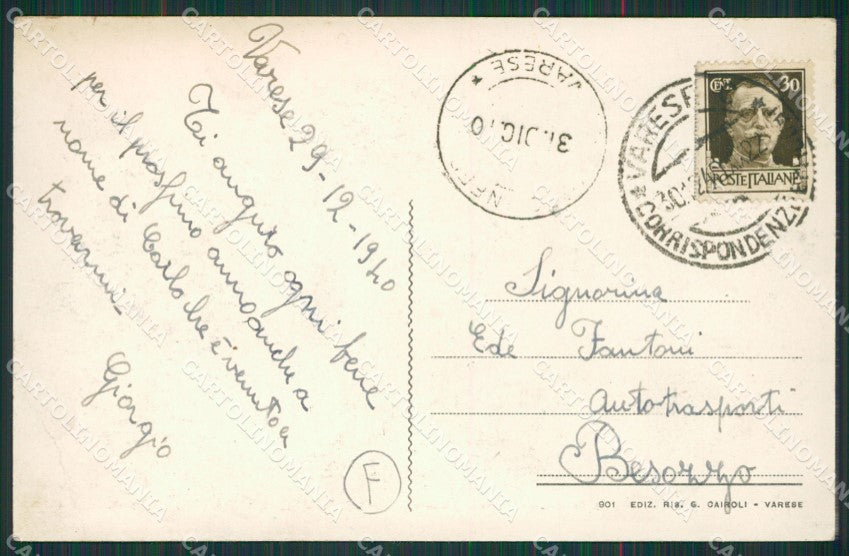 Varese 29-12-1940
Ti auguro ogni bene
per il prossimo anno anche a
nome di Carlo che è venuto a
trovarmi.
Giorgio
F
VARESE
31.DIC.40
CENT. 30
POSTE ITALIANE
VARESE
CORRISPONDENZE
Signorina
Ede Fantoni
Autotrasporti
Besozzo
901 EDIZ. RIS. G. CAIROLI - VARESE
CARTOLINOMANIA